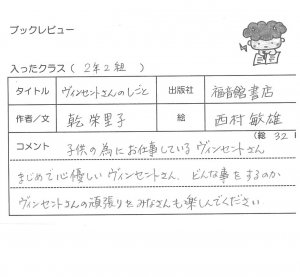 ブックレビュー
入ったクラス ( 2年2組 )
タイトル ヴィンセントさんのしごと 出版社 福音館書店
作者/文 乾 栄里子 絵 西村 敏雄
(総 32
コメント 子供の為にお仕事しているヴィンセントさん
まじめで心優しいヴィンセントさん、どんな事をするのか
ヴィンセントさんの頑張りをみなさんも楽しんでください